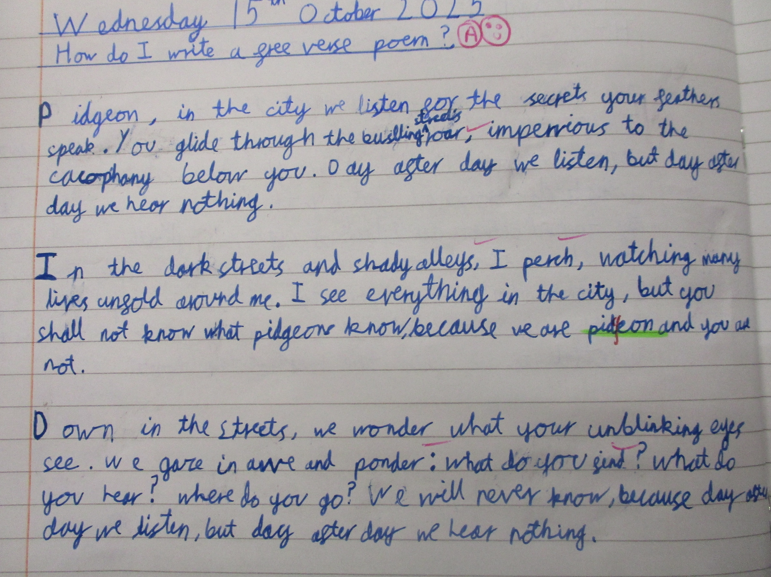 Wednesday 15th October 2025
How do I write a free verse poem? A
Pidgeon, in the city we listen for the secrets your feathers
streets
speak. You glide through the bustling roar, impervious to the
cacophany below you. Day after day we listen, but day after
day we hear nothing.
In the dark streets and shady alleys, I perch, watching many
lives unfold around me. I see everything in the city, but you
shall not know what pidgeons know, because we are pidgeon and you are
not.
Down in the streets, we wonder what your unblinking eyes
see. We gaze in awe and ponder: what do you find? What do
you hear? where do you go? We will never know, because day after
day we listen, but day after day we hear nothing.